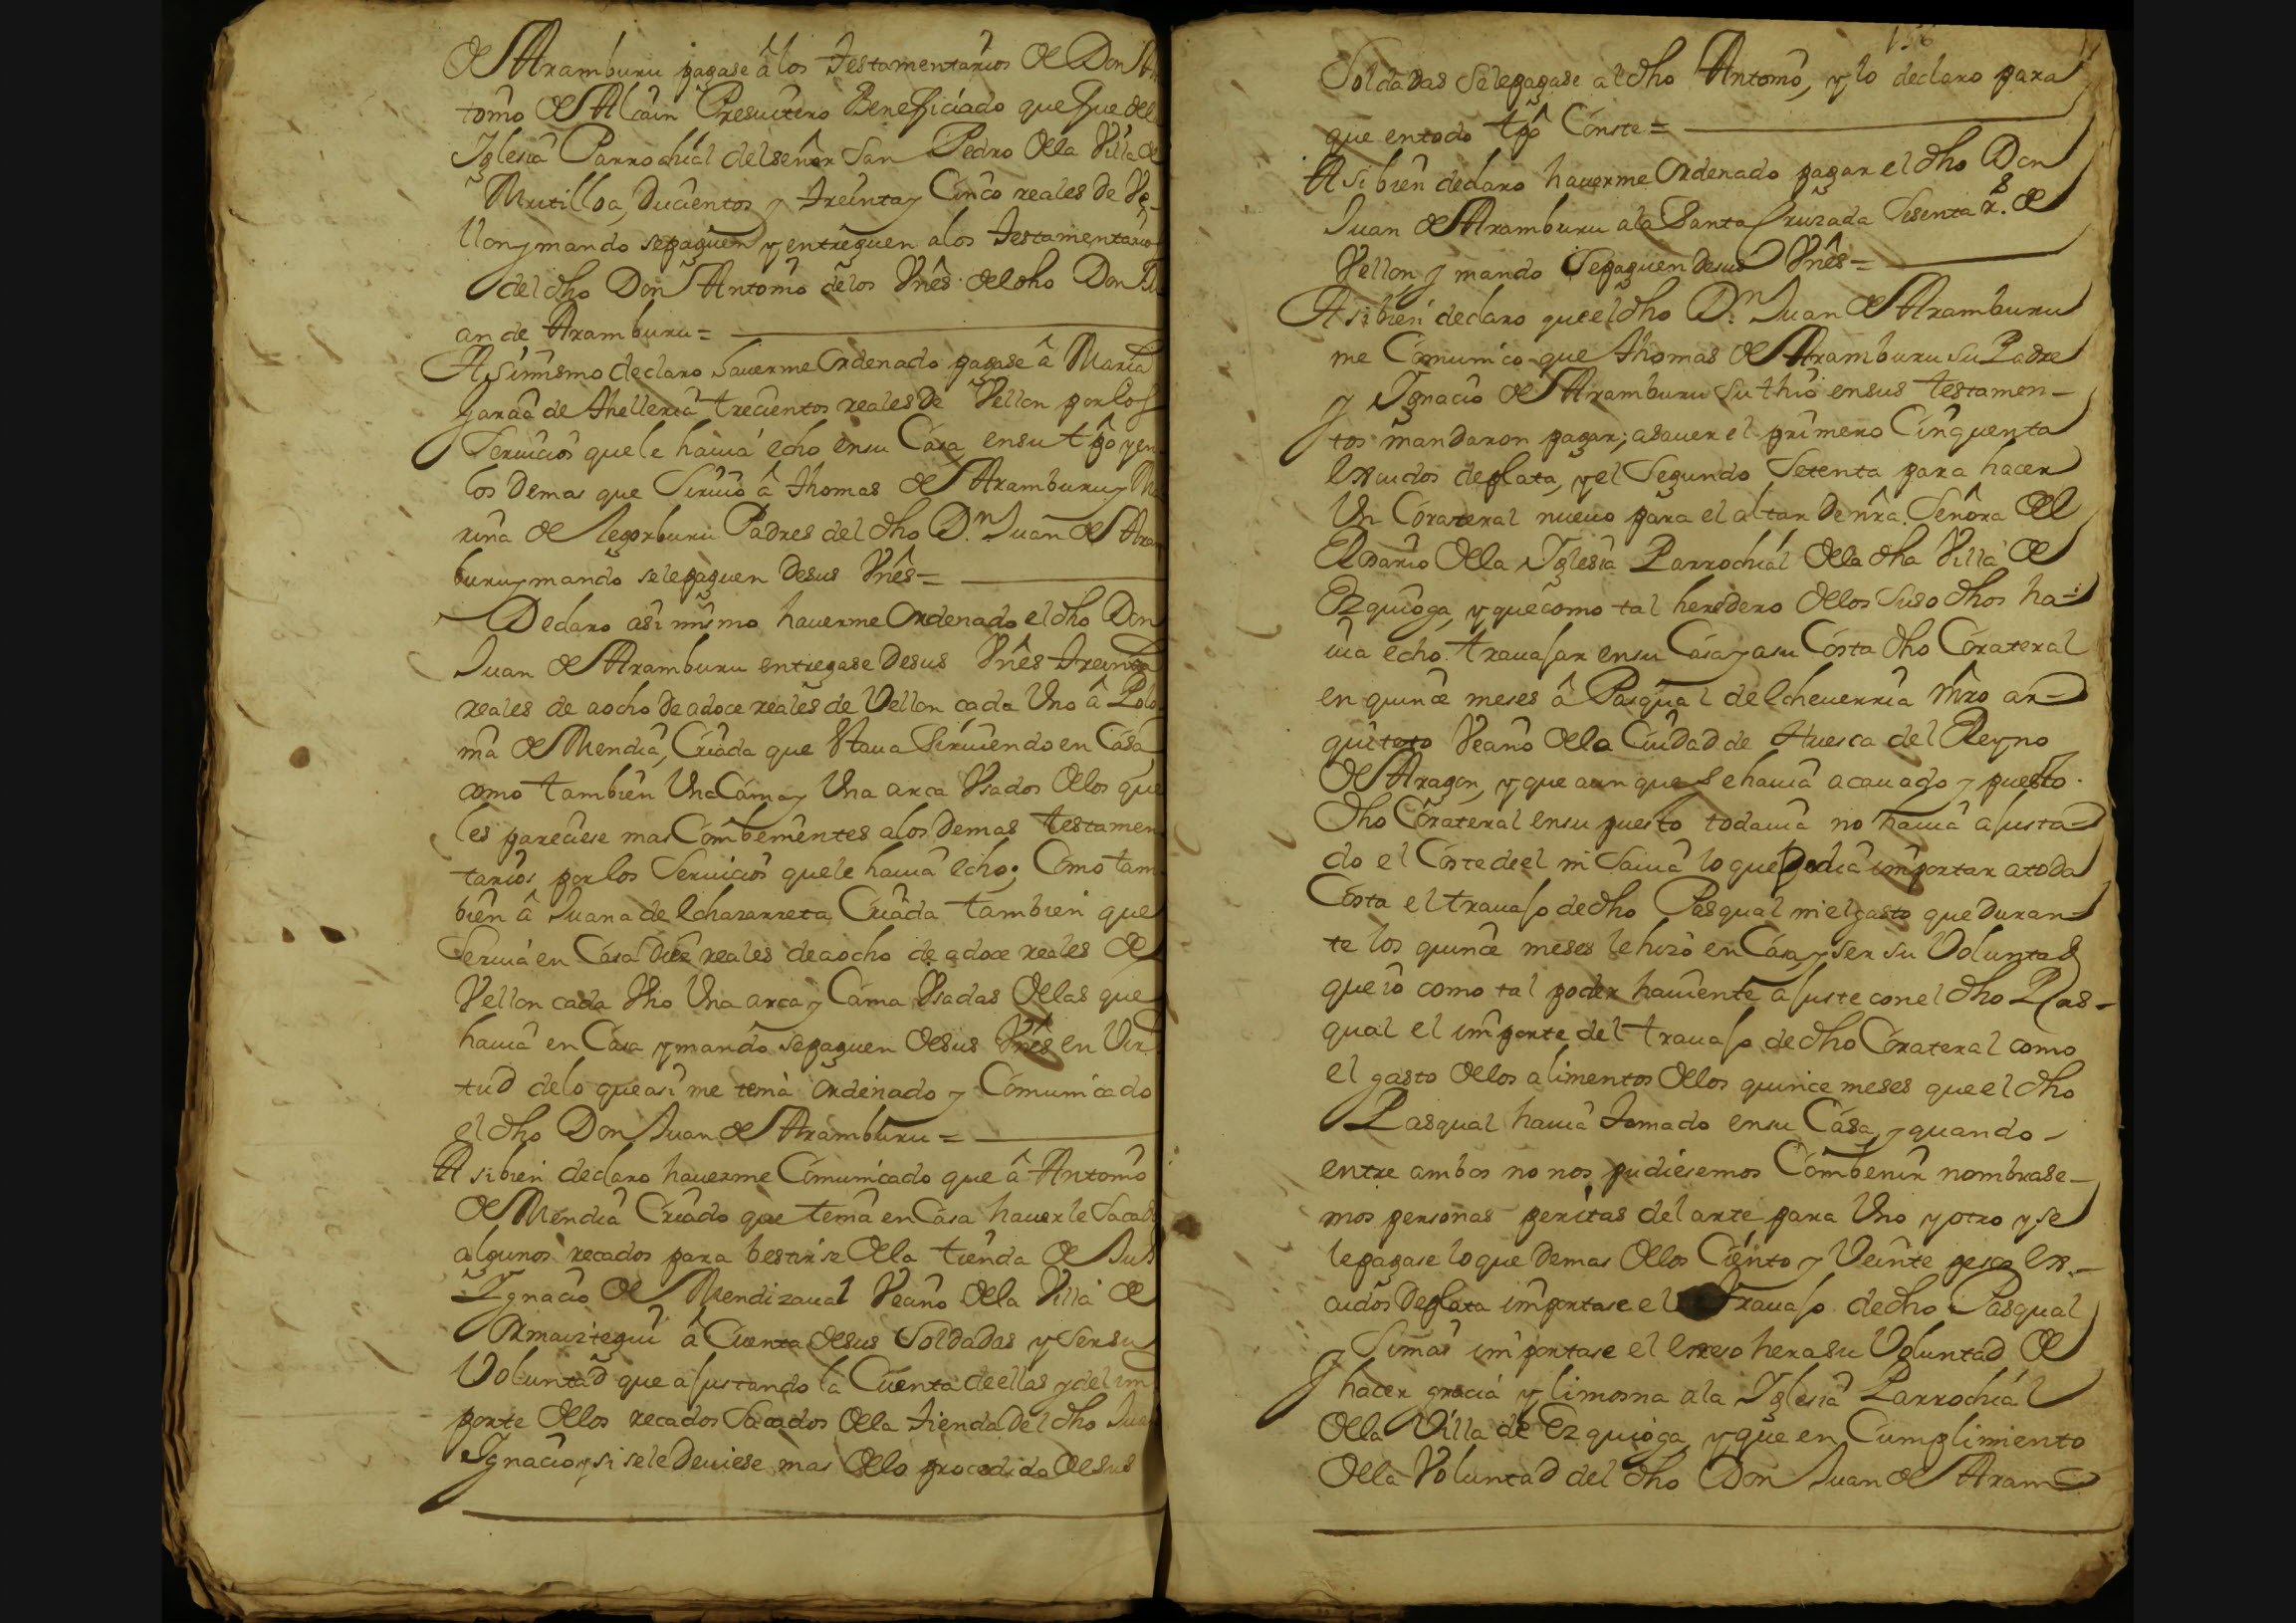 de Aramburu pagase â los Testamentarios de Don An
tonio de Alçain Presuitero Beneficiado que fue de la
Iglesia Parrochial del señor San Pedro de la Villa de
Mutilloa, Ducientos y treinta y Cinco reales de Ve-
llon y mando se paguen y entreguen a los Testamentarios
del dho Don Antonio de los Vnês del dho Don Ju
an de Aramburu =
Asimismo declaro hauerme ordenado pagase â Maria
Garaa de Thelleria trecientos reales de Vellon por los
Seruicios que le hauia echo en su Cása en su tpô y en
los demas que Siruio â Thomas de Aramburu y Ma
rina de Legorburu Padres del dho D.n Juan de Aram
buru y mando se le paguen de sus Vnês =
Declaro asi mismo hauerme Ordenado el dho Don
Juan de Aramburu entregase de sus Vnês treinta
reales de a ocho de a doce reales de Vellon cada Vno â Polo
nia de Mendia, Criada que Staua Siruiendo en Cása
como tambien Vna Cáma y Vna arca Vsados de los que
les pareciese mas Combenientes a los demas testamen
tarios por los Seruicios que le hauia echo; Como tam
bien â Juana de Echazarreta Criada tambien que
Seruia en Cása Diêz reales de a ocho de a doce reales de
Vellon cada Vno Vna arca y Cáma Vsadas de las que
hauia en Cása y mando se paguen de sus Vnês en Vir
tud de lo que asi me tenia ordenado y Comunicado
el dho Don Juan de Aramburu =
Asi bien declaro hauerme Comunicado que â Antonio
de Mendia Criado que tenia en Cása hauerle Sacado
algunos recados para bestirse de la tienda de Jun
Ignacio de Mendizaual Vecino de la Villa de
Ormaiztegui â Cuenta de sus Soldadas y Ser su
Voluntad que ajustando la Cuenta de ellas y del im
porte de los recados Sacados de la tienda del dho Juan
Ignacio y si se le Deuiese mas de lo procedido de sus
136
Soldadas Se le pagase al dho Antonio, y lo declaro para
que en todo tpô Cónste =
Asi bien declaro hauerme Ordenado pagar el dho Don
Juan de Aramburu a la Santa Cruzada Sesenta r.s de
Vellon y mando Se paguen de sus Vnês =
Asi bien declaro que el dho D.n Juan de Aramburu
me Comunico que Thomas de Aramburu Su Padre
y Ignacio de Aramburu Su thio en sus testamen-
tos mandaron pagar; a sauer el primero Cinquenta
escudos de plata, y el Segundo Setenta para hacer
Vn Córateral nueuo para el altar de nrâ Señora del
Rosario de la Iglesia Parrochial de la dha Villa de
Ezquioga, y que como tal heredero de los Suso dhos ha-
uia echo trauajar en su Cása y a su Cósta dho Córateral
en quince meses â Pasqual de Echeuerria Mrô ar-
quitecto Vecino de la Ciudad de Huesca del Reyno
de Aragon, y que aunque Se hauia acauado y puesto
dho Córateral en su puesto todauia no hauia ajusta-
do el Cóste de el ni Sauia lo que podia importar a toda
Cósta el trauajo de dho Pasqual ni el gasto que duran-
te los quince meses le hizo en Cása, y ser su Voluntad
que io como tal poder hauiente ajuste con el dho Pas-
qual el importe del trauajo de dho Córateral como
el gasto de los alimentos de los quince meses que el dho
Pasqual hauia tomado en su Cása, y quando
entre ambos no nos pudiésemos Combenir nombrase-
mos personas peritas del arte para Vno y otro y se
le pagase lo que demas de los Ciento y Veinte es-
cudos de plata importase el trauajo de dho Pasqual
y Si mas importase el exceso hera su Voluntad de
hacer gracia y limosna a la Iglesia Parrochial
de la Villa de Ezquioga y que en Cumplimiento
de la Voluntad del dho Don Juan de Aram-